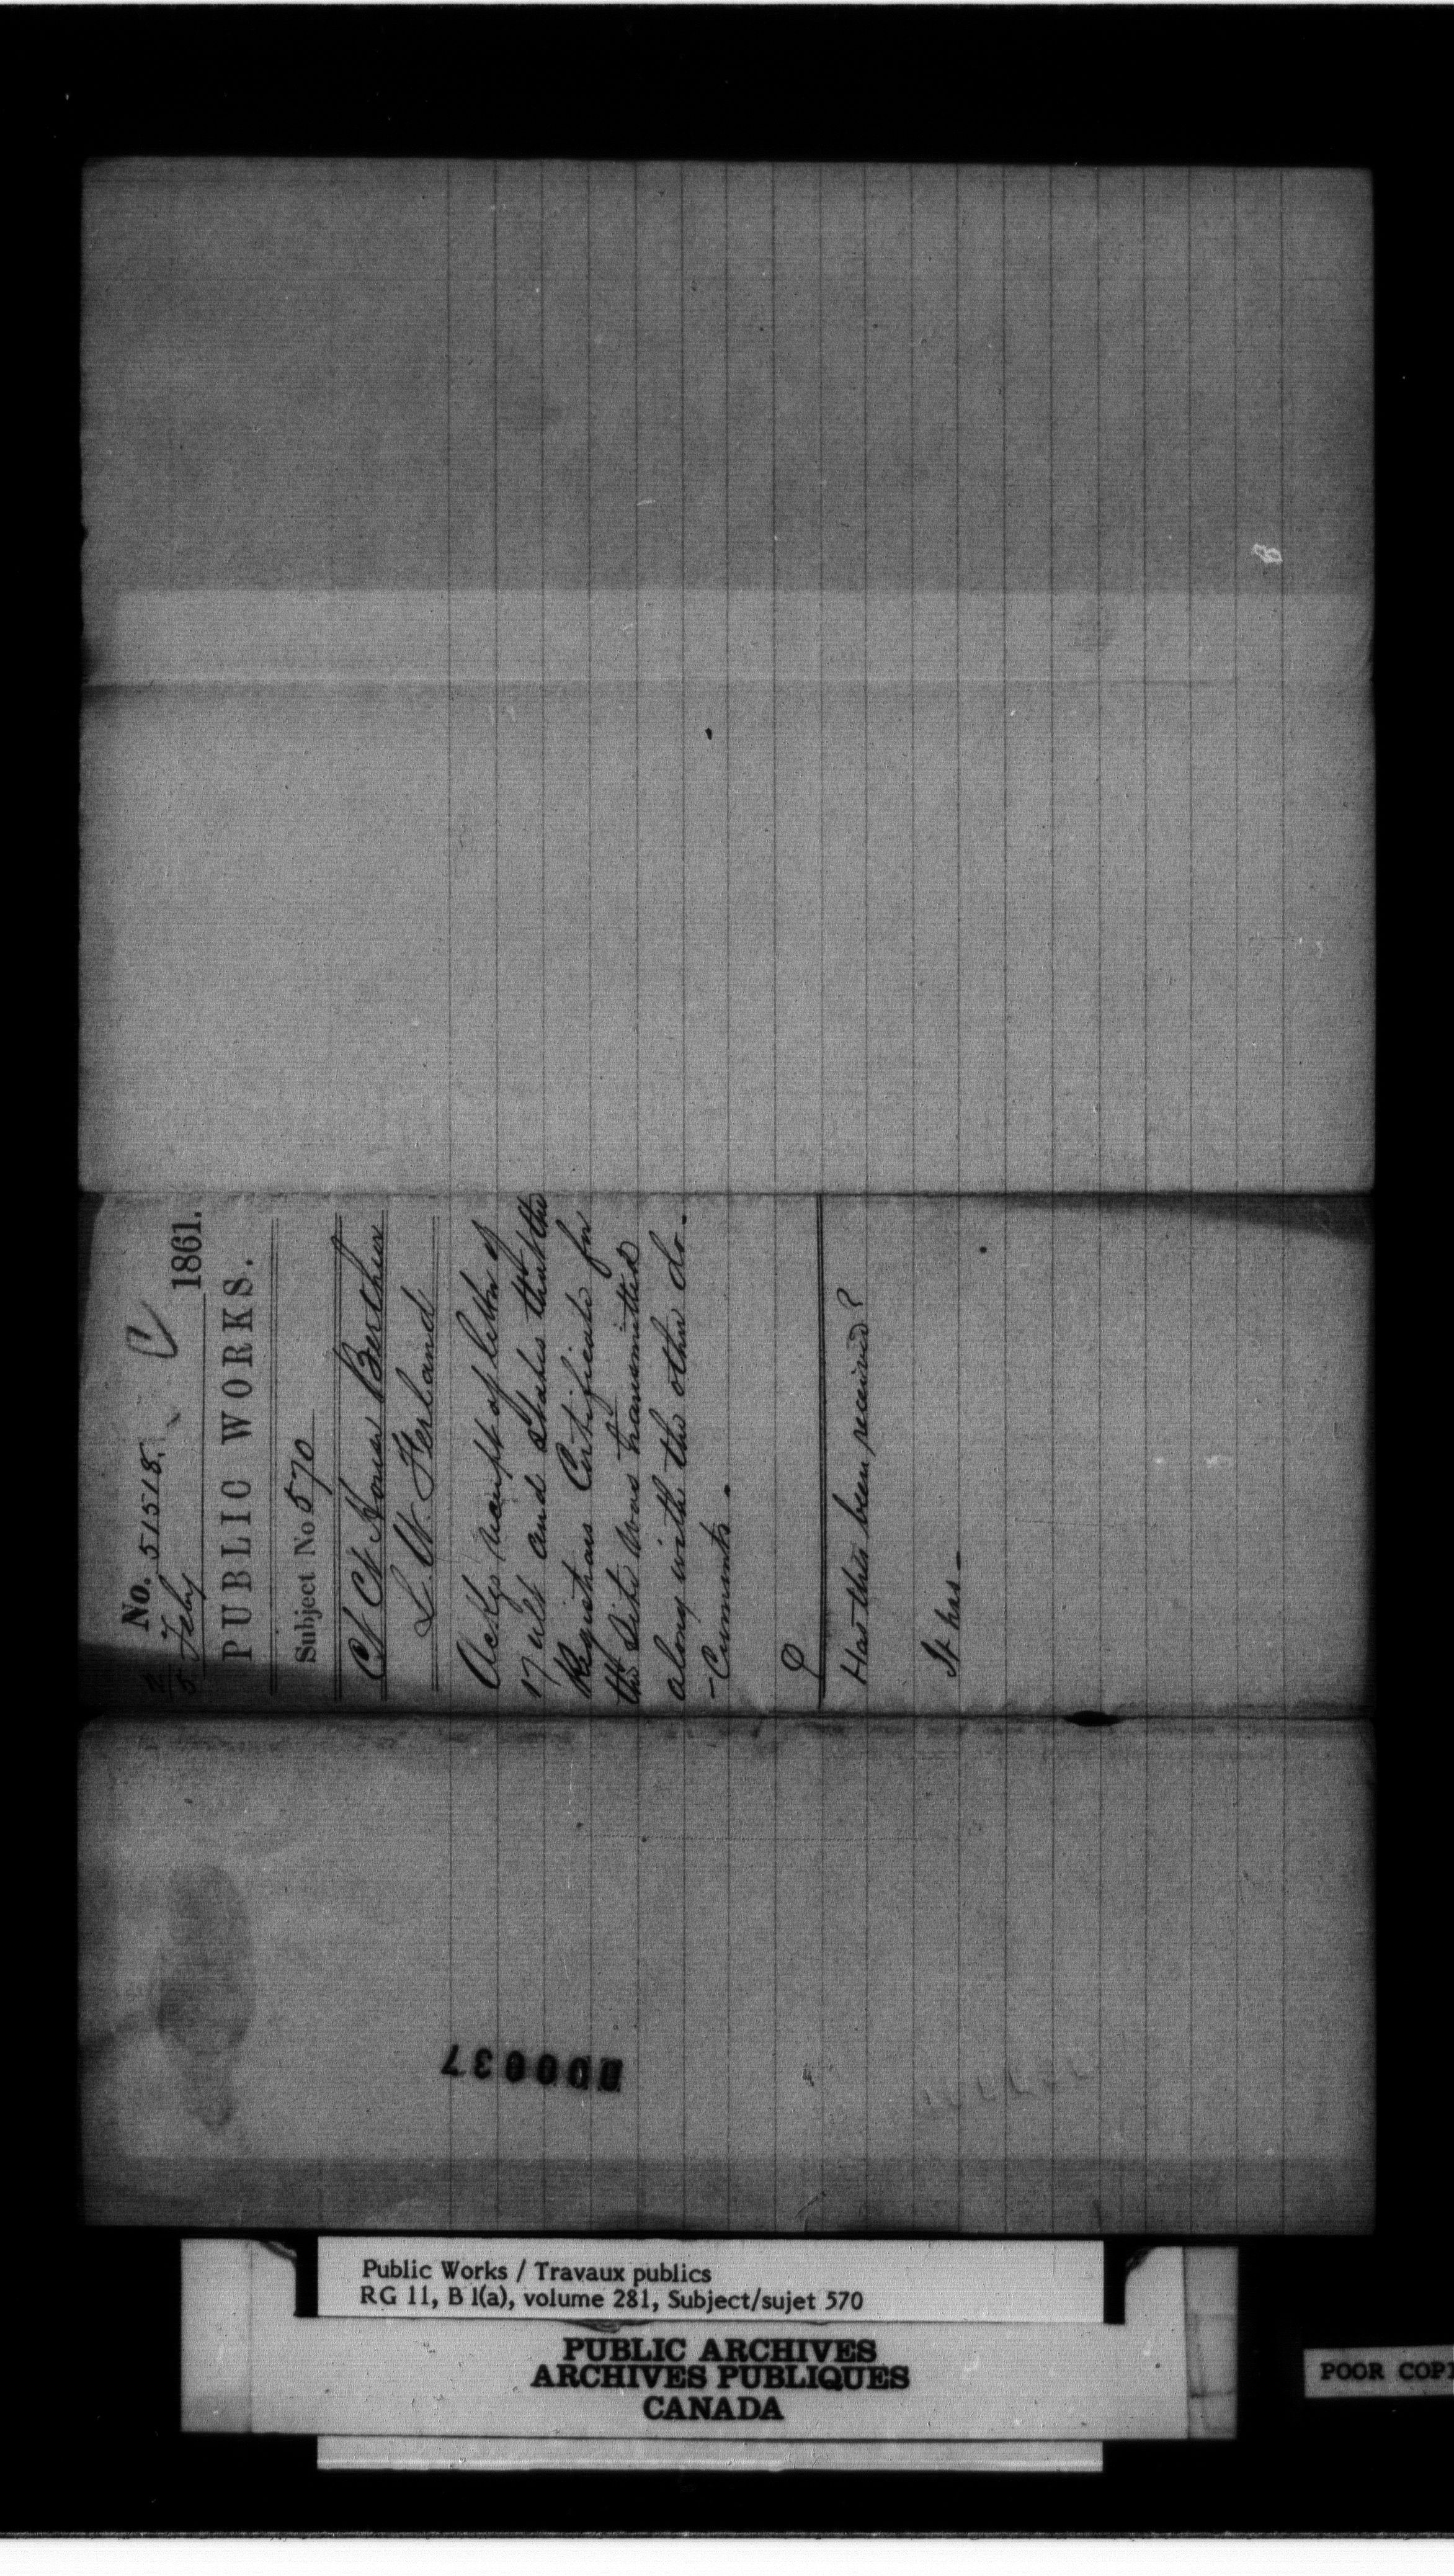 No. 51518. C
2/5 Feby 1861.
PUBLIC WORKS.
Subject No 570
Ct House Berthier
L. W. Ferland
Ackgs receipt of letter of
17 ult and states that the
Registrars Certificate for
the Site was transmitted
along with the other do-
-cuments.
Has this been received?
It has -
000037
Public Works / Travaux publics
RG 11, B 1(a), volume 281, Subject/sujet 570
PUBLIC ARCHIVES
ARCHIVES PUBLIQUES
CANADA
POOR COPY